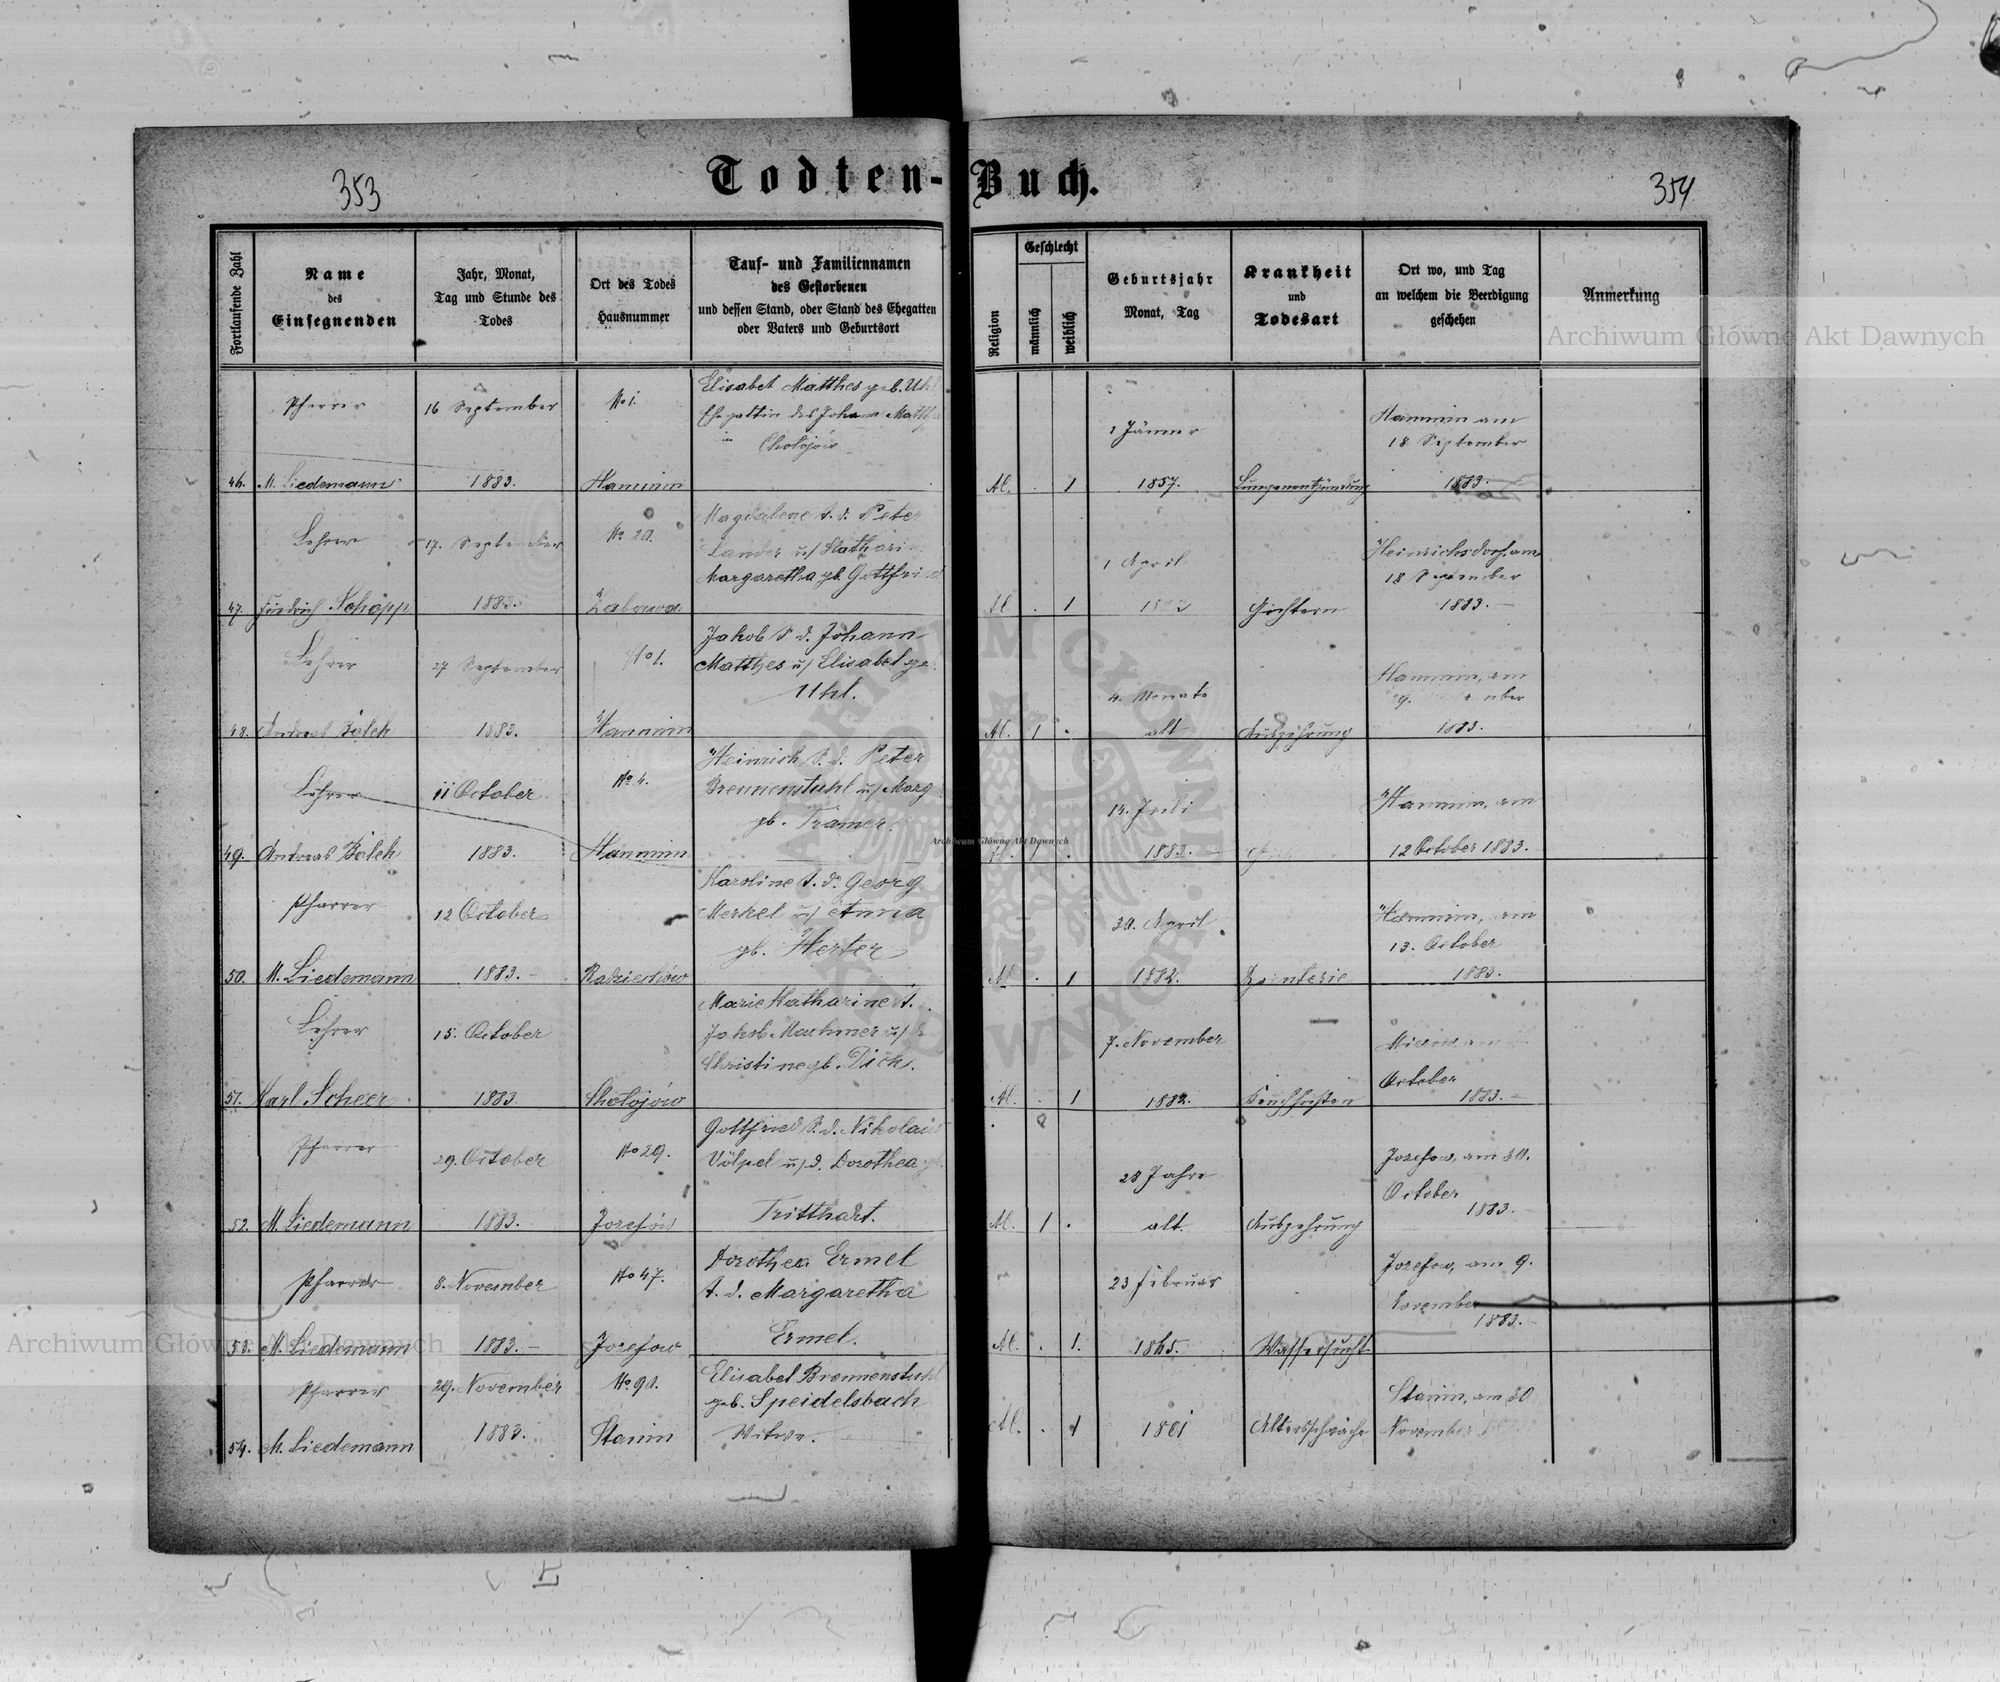 353
Todten-Buch.
354
Fortlaufende Zahl
Name
des
Einsegnenden
Jahr, Monat,
Tag und Stunde des
Todes
Ort des Todes
Hausnummer
Tauf- und Familiennamen
des Gestorbenen
und dessen Stand, oder Stand des Ehegatten
oder Vaters und Geburtsort
Religion
Geschlecht
männlich
weiblich
Geburtsjahr
Monat, Tag
Krankheit
und
Todesart
Ort wo, und Tag
an welchem die Beerdigung
geschehen
Anmerkung
Archiwum Główne Akt Dawnych
46.
Pfarrer
M. Liedemann
16 September
1883.
No 1.
Hanunin
Elisabet Matthes geb. Uhl
Ehegattin des Johann
in
Cholojów
1
1 Jänner
1857.
Lungenentzündung
Hanunin am
18 September
1883.
47.
Lehrer
Friedrich Schöpp
17. September
1883.
No 20.
Zabawa
Magdalene t. d. Peter
Lander u/
Margaretha gb. Gottfried
1
1 April
Gichtern
Heinrichsdorf, am
18 September
1883.
48.
Lehrer
Andreas Bolch
27 September
1883.
No 1.
Hanunin
Jakob S. d. Johann
Matthes u/ Elisabet ge.
Uhl.
1
4. Monate
alt
Auszehrung
Hanunin, am
1883.
49.
Lehrer
Andreas Bolch
11 October
1883.
No 4.
Hanunin
Heinrich S. d. Peter
Brennenstuhl u/ Marg
gb. Tramer.
1
14. Juli
1883.
Hanunin, am
12 October 1883.
50.
Pfarrer
M. Liedemann
12 October
1883.
Radziechów
Karoline t. d. Georg
Merkel u/ Anna
gb. Herter
1
30. April
1882.
Hanunin, am
13. October
1883.
51.
Lehrer
Karl Scheer
15. October
1883.
Cholojów
Marie Katharine t.
Jakob Machmer u/
Christine gb. Dick.
1
7. November
1882.
Keuchhusten
am
October
1883.
52.
Pfarrer
M. Liedemann
29. October
1883.
No 29.
Jozefów
Gottfried S. d. Nikolaus
Völpel u/ d. Dorothea
Tritthart.
1
28 Jahre
alt.
Auszehrung
Jozefow, am 30.
October
1883.
53.
Pfarrer
M. Liedemann
8. November
1883.
No 47.
Jozefow
Dorothea Ermel
t. d. Margaretha
Ermel.
1.
23 Februar
1865.
Wassersucht
Jozefow, am 9.
November
1883.
54.
Pfarrer
M. Liedemann
29. November
1883.
No 90.
Stanin
Elisabet Brennenstuhl
geb. Speidelsbach
Witwe.
1
1801
Altersschwäche
Stanin, am 30
November
Archiwum Główne Akt Dawnych
Archiwum Główne Akt Dawnych